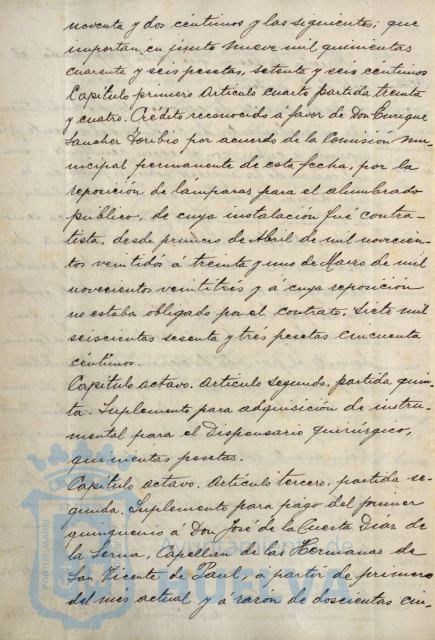 noventa y dos céntimos y las siguientes, que
importan en junto nueve mil quinientas
cuarenta y seis pesetas, setenta y seis céntimos
Capítulo primero Artículo cuarto partida treinta
y cuatro. Crédito reconocido á favor de Don Enrique
Sanchez Toribio por acuerdo de la Comisión Mu-
nicipal permanente de esta fecha, por la
reposición de lámparas para el alumbrado
público, de cuya instalación fué contra-
tista, desde primero de Abril de mil novecien-
tos veintidós á treinta y uno de Marzo de mil
novecientos veintitrés y á cuya reposición
no estaba obligado por el contrato, siete mil
seiscientas sesenta y trés pesetas cincuenta
céntimos.
Capítulo octavo. Artículo segundo. partida quin-
ta. Suplemento para adquisición de instru-
mental para el Dispensario quirúrgico,
quinientas pesetas.
Capítulo octavo. Artículo tercero, partida se-
gunda. Suplemento para pago del primer
quinquenio á Don José de la Cuesta Diaz de
la Serna, Capellan de las Hermanas de
San Vicente de Paul, á partir de primero
del més actual y á razón de doscientas cin-